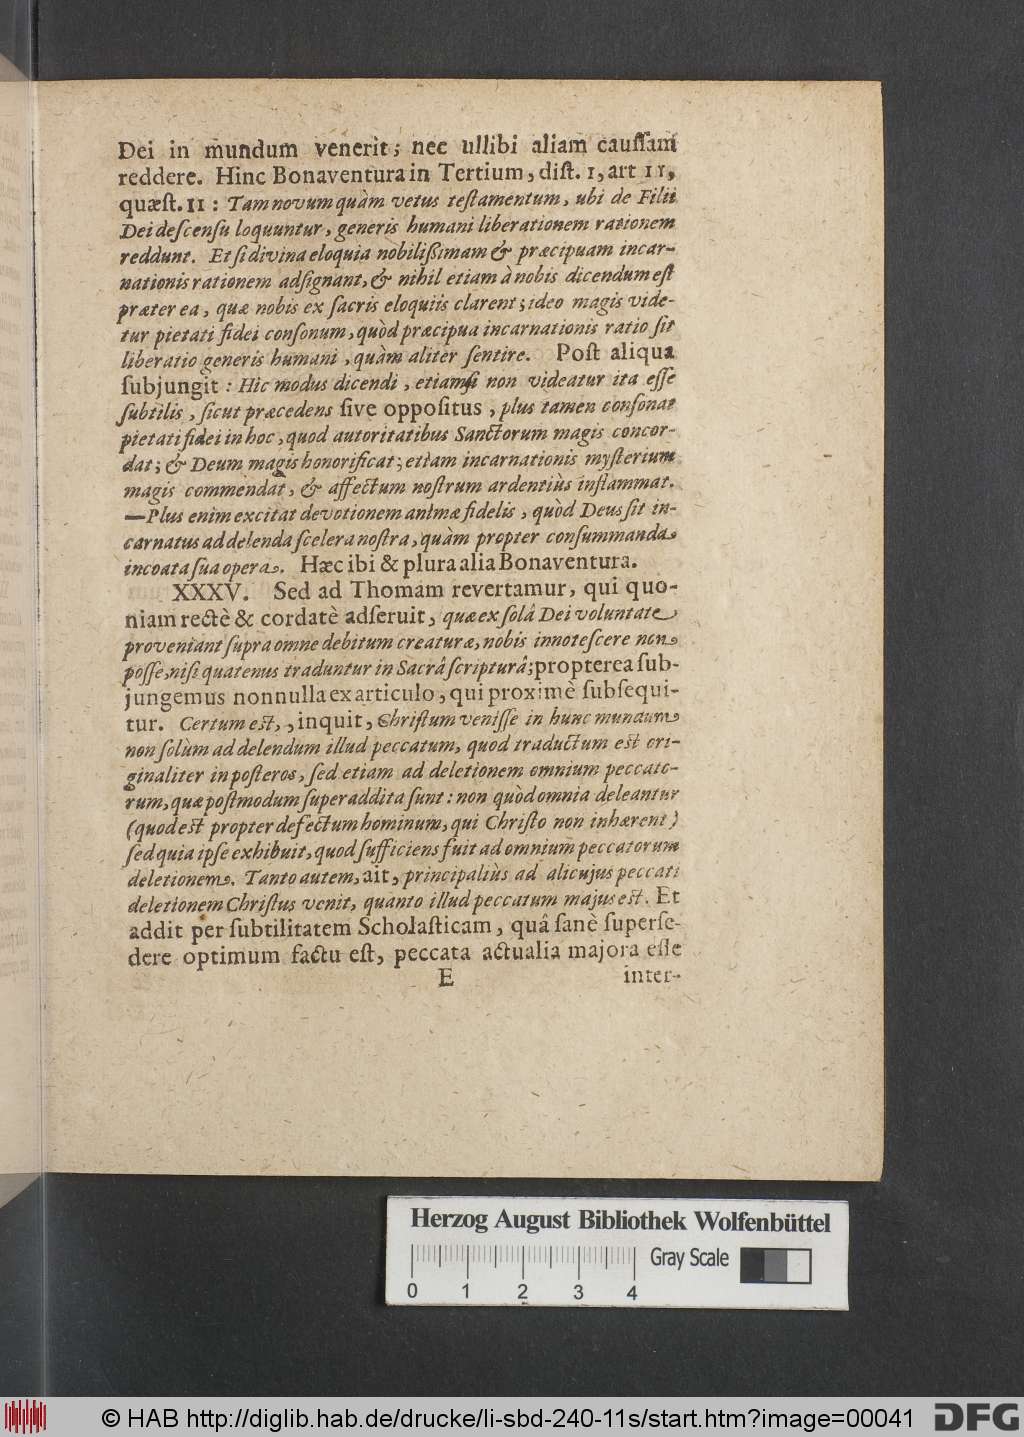 Dei in mundum venerit; nec ullibi aliam cauſſam
reddere. Hinc Bonaventura in Tertium, diſt. 1, art 11,
quæſt. 11 : Tam novum quàm vetus teſtamentum, ubi de Filii
Dei deſcenſu loquuntur, generis humani liberationem rationem
reddunt. Et ſi divina eloquia nobiliſſimam & præcipuam incar-
nationis rationem adſignant, & nihil etiam à nobis dicendum eſt
præter ea, quæ nobis ex ſacris eloquiis clarent; ideo magis vide-
tur pietati fidei conſonum, quòd præcipua incarnationis ratio ſit
liberatio generis humani, quàm aliter ſentire. Poſt aliqua
ſubjungit : Hic modus dicendi, etiamſi non videatur ita eſſe
ſubtilis, ſicut præcedens ſive oppoſitus, plus tamen conſonat
pietati fidei in hoc, quod autoritatibus Sanctorum magis concor-
dat; & Deum magis honorificat; etiam incarnationis myſterium
magis commendat, & affectum noſtrum ardentiùs inflammat.
—Plus enim excitat devotionem animæ fidelis, quòd Deus ſit in-
carnatus ad delenda ſcelera noſtra, quàm propter conſummanda
incoata ſua opera. Hæc ibi & plura alia Bonaventura.
XXXV. Sed ad Thomam revertamur, qui quo-
niam rectè & cordatè adſeruit, quæ ex ſolâ Dei voluntate
proveniant ſupra omne debitum creaturæ, nobis innoteſcere non
poſſe, niſi quatenus traduntur in Sacrâ ſcripturâ; propterea ſub-
jungemus nonnulla ex articulo, qui proximè ſubſequi-
tur. Certum eſt,, inquit, Chriſtum veniſſe in hunc mundum
non ſolùm ad delendum illud peccatum, quod traductum eſt ori-
ginaliter in poſteros, ſed etiam ad deletionem omnium peccato-
rum, quæ poſtmodum ſuperaddita ſunt : non quòd omnia deleantur
(quod eſt propter defectum hominum, qui Chriſto non inhærent)
ſed quia ipſe exhibuit, quod ſufficiens fuit ad omnium peccatorum
deletionem. Tanto autem, ait, principaliùs ad alicujus peccati
deletionem Chriſtus venit, quanto illud peccatum majus eſt. Et
addit per ſubtilitatem Scholaſticam, quâ ſanè ſuperſe-
dere optimum factu eſt, peccata actualia majora eſſe
E inter-
Herzog August Bibliothek Wolfenbüttel
Gray Scale
0 1 2 3 4
© HAB http://diglib.hab.de/drucke/li-sbd-240-11s/start.htm?image=00041 DFG